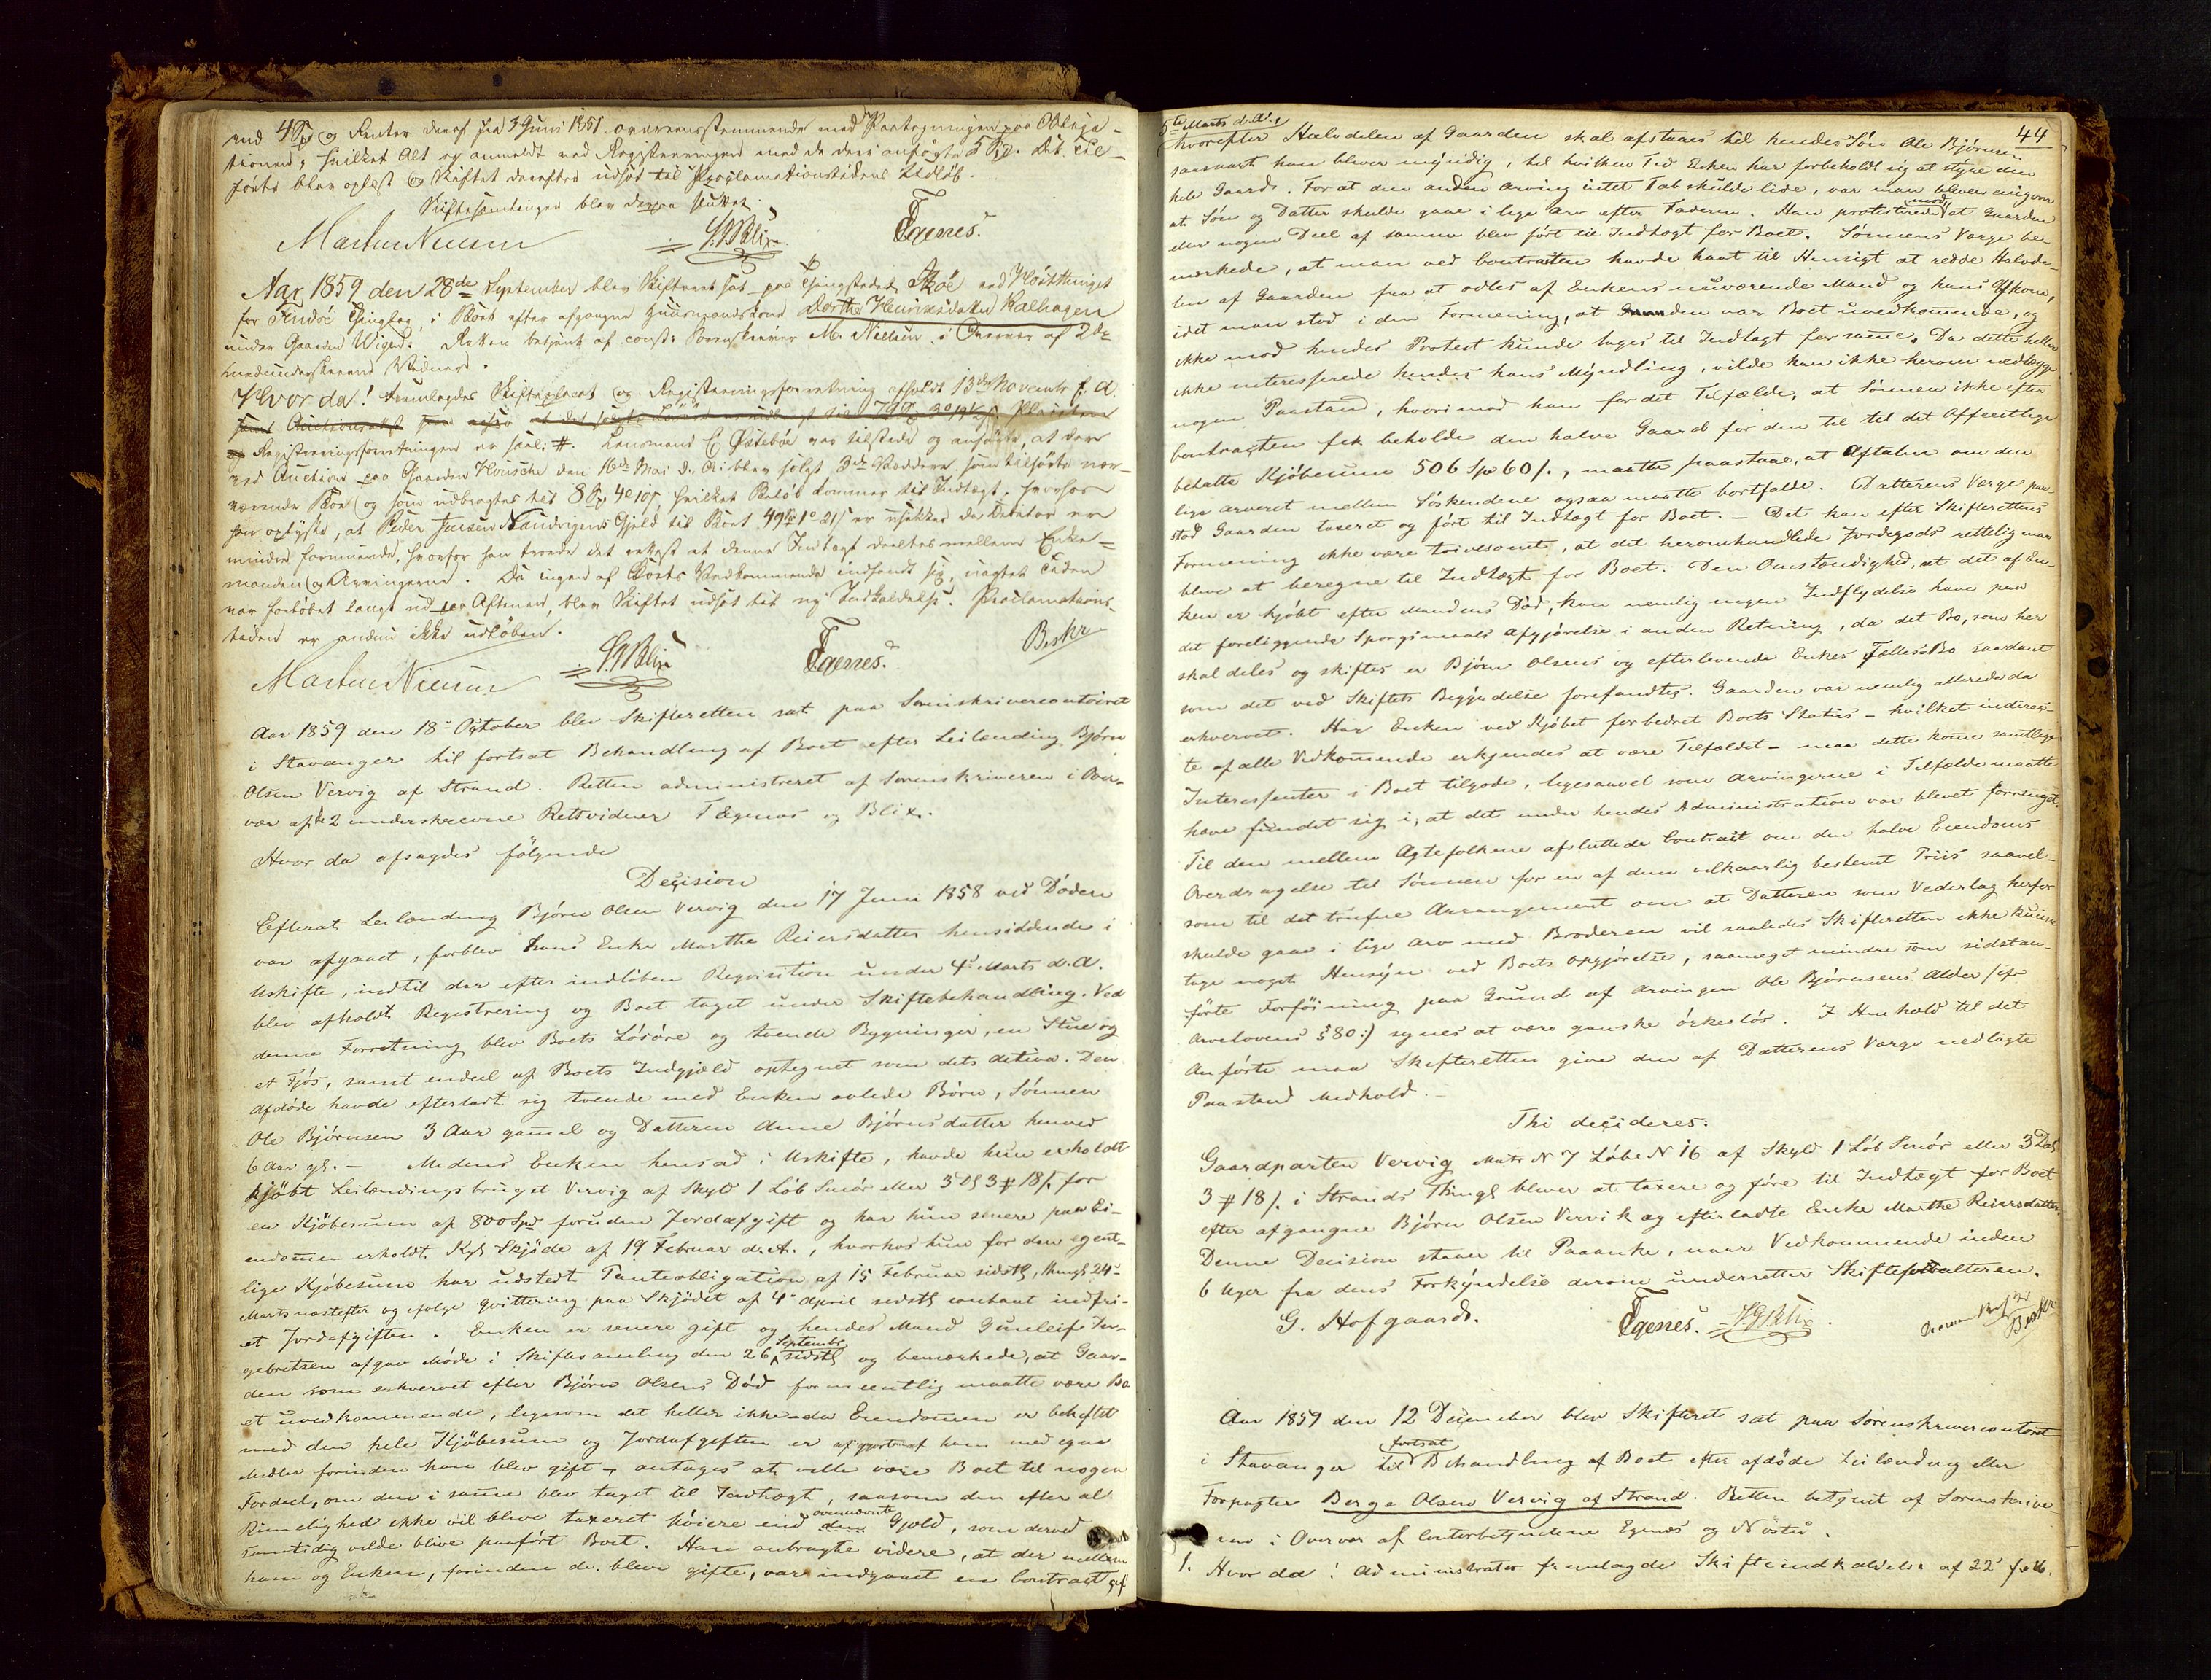 end 4 Spd og Renter deraf fra 3 Juni 1851 overeensstemmende med Paategningen paa Obliga-
tionen, hvilket Alt og anmeldt ved Registreringen med de deri anførte 5 Spd. Det Til-
førte blev oplæst og Skiftet derefter udsat til Proclamationstidens Udløb.
Skiftesamlingen blev derpaa sluttet.
Martin Nielsen S. G. Blix Tgenes.
Aar 1859 den 28de September blev Skifteret sat paa Thingstedet ved Høstthinget
for Findø Thinglag, i Boet efter afgangne Huusmandskone Dorthe Henriksdatter Kalhagen
under Gaarden Wigen. Retten betjent af const. Sorenskriver M. Nielsen i Overvær af 2de
medunderskrevne Vidner.
Hvor da! fremlagdes Skifteplacat og Registreringsforretning afholdt 13de Novembr f. A.
Registreringsforretningen er saal. #. Lensmand E Østebøe var tilstede og anførte, at der
ved Auction paa Gaarden den 16de Mai d. A. blev solgt 3de Væddere, som tilhørte nær-
værende Boe og som udbragtes til 8 Spd 4 10 s, hvilket Beløb kommer til Indtægt. Hvorhos
han oplyste, at Peder Jensen Gjeld til Boet 49 Spd 1 21 s er usikker da Debitor er
mindre formuende, hvorfor han troede det rettest at denne Indtægt deeltes mellem Enke-
manden og Arvingerne. Da ingen af Boets Vedkommende indfandt sig, uagtet Tiden
var forløbet langt ud paa Aftenen, blev Skiftet udsat til ny Indkaldelse. Proclamations-
tiden er endnu ikke udløben.
Martin Nielsen S G Blix Tgenes. Beskr
Aar 1859 den 18de October blev Skifteretten sat paa Sorenskrivercontoiret
i Stavanger til fortsat Behandling af Boet efter Leilænding Bjørn
Olsen Vervig af Strand. Retten administreret af Sorenskriveren i Over-
vær af de 2 underskrevne Retsvidner T Egenes og Blix.
Hvor da afsagdes følgende
Decision
Efterat Leilænding Bjørn Olsen Vervig den 17 Juni 1858 ved Døden
var afgaaet, forblev hans Enke Marthe Reiersdatter hensiddende i
Uskifte, indtil der efter indløben Reqvisition under 4de Marts d. A.
blev afholdt Registrering og Boet taget under Skiftebehandling. Ved
denne Forretning blev Boets Løsøre og tvende Bygninger, en Stue og
et Fjøs, samt endeel af Boets Indgjæld optegnet som dets Activa. Den
afdøde havde efterladt sig tvende med Enken avlede Børn, Sønnen
Ole Bjørnsen 3 Aar gammel og Datteren Anne Bjørnsdatter henved
6 Aar gl. – Medens Enken hensad i Uskifte, havde hun erholdt
kjøbt Leilændingsbruget Vervig af Skyld 1 Løb Smør eller 3 Dl 3 # 18 s. for
en Kjøbesum af 800 Spd foruden Jordafgift og har hun senere paa Ei-
endomen erholdt Kgl Skjøde af 19 Februar d. A., hvorhos hun for den egent-
lige Kjøbesum har udstedt Panteobligation af 15 Februar sidstl, thingl 24de
Marts næstefter og ifølge qvittering paa Skjødet af 4de April sidstl contant indfri-
et Jordafgiften. Enken er senere gift og hendes Mand Gunleif Tor-
gebretsen afgav Møde i Skiftesamling den 26 Septembr sidstl og bemærkede, at Gaar-
den som erhvervet efter Bjørn Olsens Død formeentlig maatte være Bo-
et uvedkommende, ligesom det heller ikke – da Eiendomen er beheftet
med den hele Kjøbesum og Jordafgiften er afgjort af ham med egne
Midler forinden han blev gift – antages at ville være Boet til nogen
Fordeel, om den i samme blev taget til Indtægt, saasom den efter al
Rimelighed ikke vil blive taxeret høiere end ovennævnte Gjæld, som derved
samtidig vilde blive paaført Boet. Han anbragte videre, at der mellem
ham og Enken, forinden de bleve gifte, var indgaaet en Contract af
44
5te Marts d. A.,
hvorefter Halvdelen af Gaarden skal afstaaes til hendes Søn Ole Bjørnsen
saasnart han bliver myndig, til hvilken Tid Enken har forbeholdt sig at styre den
hele Gaard. For at den anden Arving intet Tab skulde lide, var man bleven enig om
at Søn og Datter skulde gaae i lige Arv efter Faderen. Han protesterede mod at Gaarden
eller nogen Deel af samme blev ført til Indtægt for Boet. Sønnens Værge be-
mærkede, at man ved Contracten havde havt til Hensigt at redde Halvde-
len af Gaarden fra at odles af Enkens nuværende Mand og hans Afkom,
idet man stod i den Formening, at Gaarden var Boet uvedkommende, og
ikke mod hendes Protest kunde tages til Indtægt for samme. Da dette heller
ikke interesserede hendes hans Myndling, vilde han ikke herom nedlægge
nogen Paastand, hvorimod han for det Tilfælde, at Sønnen ikke efter
Contracten fik beholde den halve Gaard for den til til det Offentlige
betalte Kjøbesum 506 Spd 60 s., maatte paastaae, at Aftalen om den
lige Arveret mellem Søskendene ogsaa maatte bortfalde. Datterens Værge paa-
stod Gaarden taxeret og ført til Indtægt for Boet. – Det kan efter Skifterettens
Formening ikke være tvivlsomt, at det heromhandlede Jordegods rettelig maa
blive at beregne til Indtægt for Boet. Den Omstændighed, at det af En-
ken er kjøbt efter Mandens Død, kan nemlig ingen Indflydelse have paa
det foreliggende Spørgsmaals Afgjørelse i anden Retning, da det Bo, som her
skal deles og skiftes er Bjørn Olsens og efterlevende Enkes FællesBo saadant
som det ved Skiftets Begyndelse forefandtes. Gaarden var nemlig allerede da
erhvervet. Har Enken ved Kjøbet forbedret Boets Status – hvilket indirec-
te af alle Vedkommende erkjendes at være Tilfældet – maa dette komme samtlige
Interessenter i Boet tilgode, ligesaavel som Arvingerne i Tilfælde maatte
have fundet sig i, at det under hendes Administration var blevet forringet.
Til den mellem Ægtefolkene afsluttede Contract om den halve Eiendoms
Overdragelse til Sønnen for en af dem vilkaarlig bestemt Priis saavel-
som til det trufne Arrangement om at Datteren som Vederlag herfor
skulde gaae i lige Arv med Broderen vil saaledes Skifteretten ikke kunne
tage noget Hensyn ved Boets Opgjørelse, saameget mindre som sidstan-
førte Forføining paa Grund af Arvingen Ole Bjørnsens Alder (cfr
Arvelovens § 80:) synes at være ganske ørkesløs. I Henhold til det
Anførte maa Skifteretten give den af Datterens Værge nedlagte
Paastand Medhold. –
Thi decideres:
Gaardparten Vervig Matr N 7 Løbe N 16 af Skyld 1 Løb Smør eller 3 Dal
3 # 18 s. i Strands Thingl bliver at taxere og føre til Indtægt for Boet
efter afgangne Bjørn Olsen Vervik og efterladte Enke Marthe Reiersdatter.
Denne Decision staaer til Paaanke, naar Vedkommende inden
6 Uger fra dens Forkyndelse derom underretter Skifteforvalteren.
G. Hofgaard. Tgenes. S G Blix. Beskr
Aar 1859 den 12 December blev Skifteret sat paa Sorenskrivercontoret
i Stavanger til fortsat Behandling af Boet efter afdøde Leilænding eller
Forpagter Berge Olsen Vervig af Strand. Retten betjent af Sorenskrive
ren i Overvær af Contorbetjentene Egenes og Nøstu.
1. Hvor da: Administrator fremlagde Skifteindkaldelse af 22de f. M.